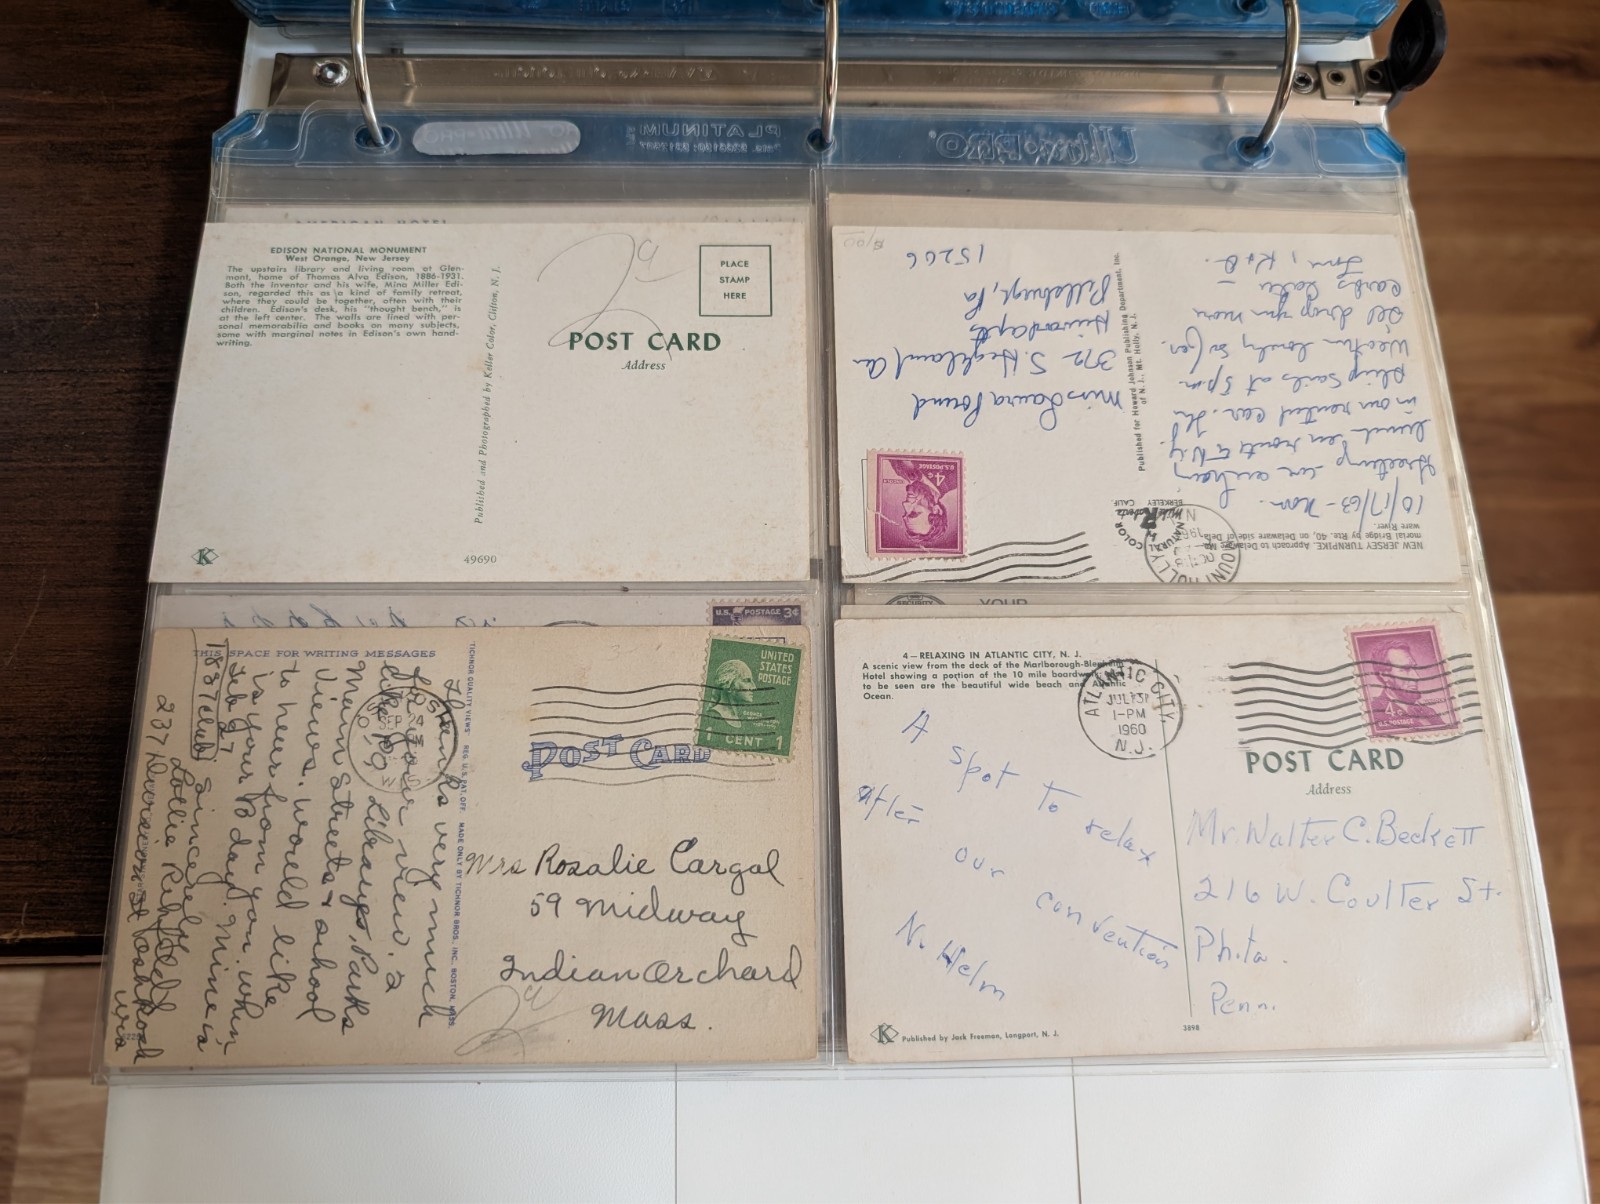 Ultra•PRO
PLATINUM
EDISON NATIONAL MONUMENT
West Orange, New Jersey
The upstairs library and living room at Glen-
mont, home of Thomas Alva Edison, 1886-1931.
Both the inventor and his wife, Mina Miller Edi-
son, regarded this as a kind of family retreat,
where they could be together, often with their
children. Edison's desk, his "thought bench," is
at the left center. The walls are lined with per-
sonal memorabilia and books on many subjects,
some with marginal notes in Edison's own hand-
writing.
Published and Photographed by Keller Color, Clifton, N. J.
PLACE
STAMP
HERE
POST CARD
Address
K
49690
NEW JERSEY TURNPIKE. Approach to Delaware Me-
morial Bridge by Rte. 40, on Delaware side of Dela-
ware River.
10/17/63 - Noon.
Greetings
lunch en route to N.Y.
in our rented car. The
ship sails at 5 pm.
Weather lovely so far.
I'll drop you more
cards later —
Love, K & B.
Published for Howard Johnson Publishing Department, Inc.
of N. J., Mt. Holly, N. J.
NATURAL COLOR
Mike Roberts
BERKELEY CALIF
MOUNT HOLLY
OCT 18
U.S. POSTAGE
4¢
Miss Laura Pound
372 S. Highland Av
Pittsburgh, Pa
15206
U.S. POSTAGE 3¢
THIS SPACE FOR WRITING MESSAGES
Thanks very much
for your view. I
like Library, Parks
Main Streets & school
Views. Would like
to hear from you when
is your B day. Mine is
Feb 27 Sincerely
1887 Club
Lottie
237 Division St Oshkosh
Wis
TICHNOR QUALITY VIEWS REG. U. S. PAT. OFF. MADE ONLY BY TICHNOR BROS., INC., BOSTON, MASS.
UNITED
STATES
POSTAGE
1 CENT 1
POST CARD
Mrs Rosalie Cargal
59 Midway
Indian Orchard
Mass.
4—RELAXING IN ATLANTIC CITY, N. J.
A scenic view from the deck of the Marlborough-Blenheim
Hotel showing a portion of the 10 mile boardwalk.
to be seen are the beautiful wide beach and Atlantic
Ocean.
ATLANTIC CITY,
JUL 31
1-PM
1960
N.J.
4¢
U.S. POSTAGE
POST CARD
Address
A spot to relax
after our convention
N. Helm
Mr. Walter C. Beckett
216 W. Coulter St.
Phila.
Penn.
K
Published by Jack Freeman, Longport, N. J.
3898